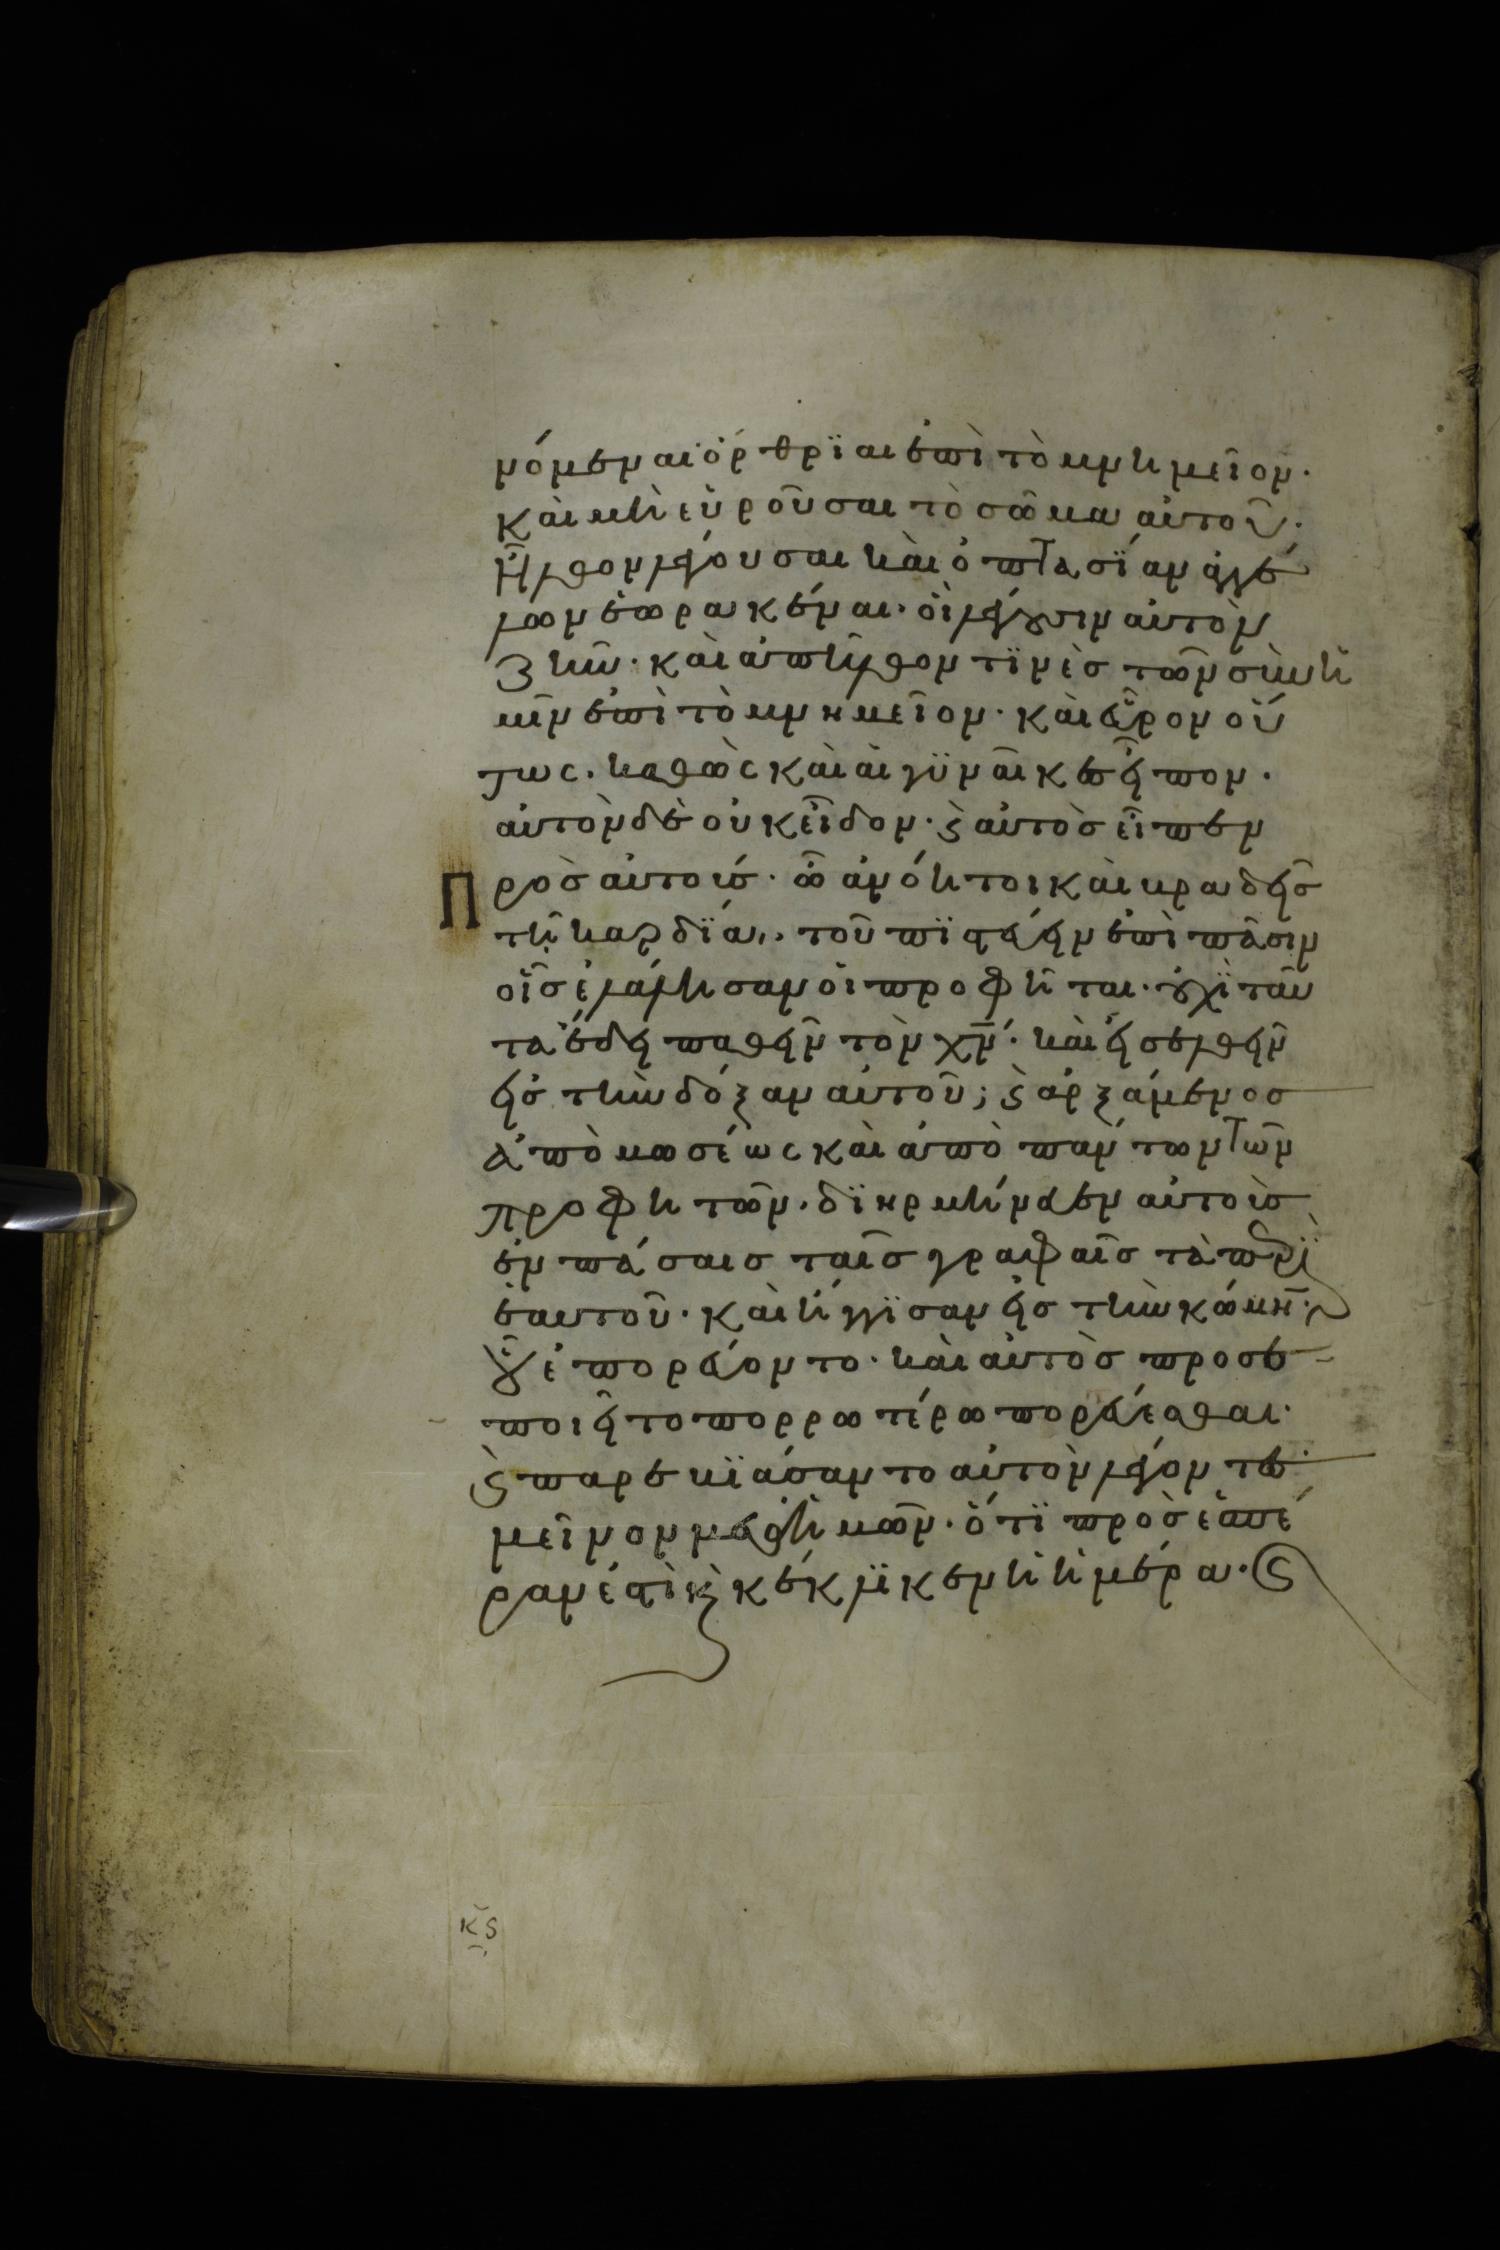 νόμεναι ὄρθρϊαι ἐπὶ τὸ μνημεῖον·
καὶ μὴ εὑροῦσαι τὸ σῶμα αὐτοῦ·
ἦλθον λέγουσαι καὶ ὀπτασΐαν ἀγγέ
λων ἑωρακέναι· οἳ λέγουσιν αὐτὸν
ζῆν· καὶ ἀπῆλθον τϊνὲς τῶν σὺν ἡ
μῖν ἐπὶ τὸ μνημεῖον· καὶ εὗρον οὕ
τως· καθὼς καὶ αἱ γϋναῖκες εἶπον·
αὐτὸν δὲ οὐκ εἶδον· ϗ αὐτὸς εἶπεν
Πρὸς αὐτούς· ὦ ἀνόητοι καὶ βραδεῖς
τῆ καρδΐα, τοῦ πϊστεύειν ἐπὶ πᾶσιν
οἷς ἐλάλησαν οἱ προφῆται· οὐχῒ ταῦ
τα ἔδει παθεῖν τὸν χν· καὶ εἰσελθεῖν
εἰς τὴν δόξαν αὐτοῦ; ϗ ἀρξάμενος
ἀπὸ μωσέως καὶ ἀπὸ πάντων τῶν
προφητῶν· δϊηρμήνευεν αὐτοῖς
ἐν πάσαις ταῖς γραφαῖς τὰ περῒ
ἑαυτοῦ· καὶ ἤγγϊσαν εἰς τὴν κώμην·
οὗ ἐπορεύοντο· καὶ αὐτὸς προσε
ποιεῖτο πορρωτέρω πορεύεσθαι·
ϗ παρεβϊάσαντο αὐτὸν λέγοντες·
μεῖνον μεθ ἡμῶν· ὅτϊ πρὸς ἑσπέ
ραν ἐστὶ ϗ κέκλϊκεν ἡ ἡμέρα· ϗ
κς